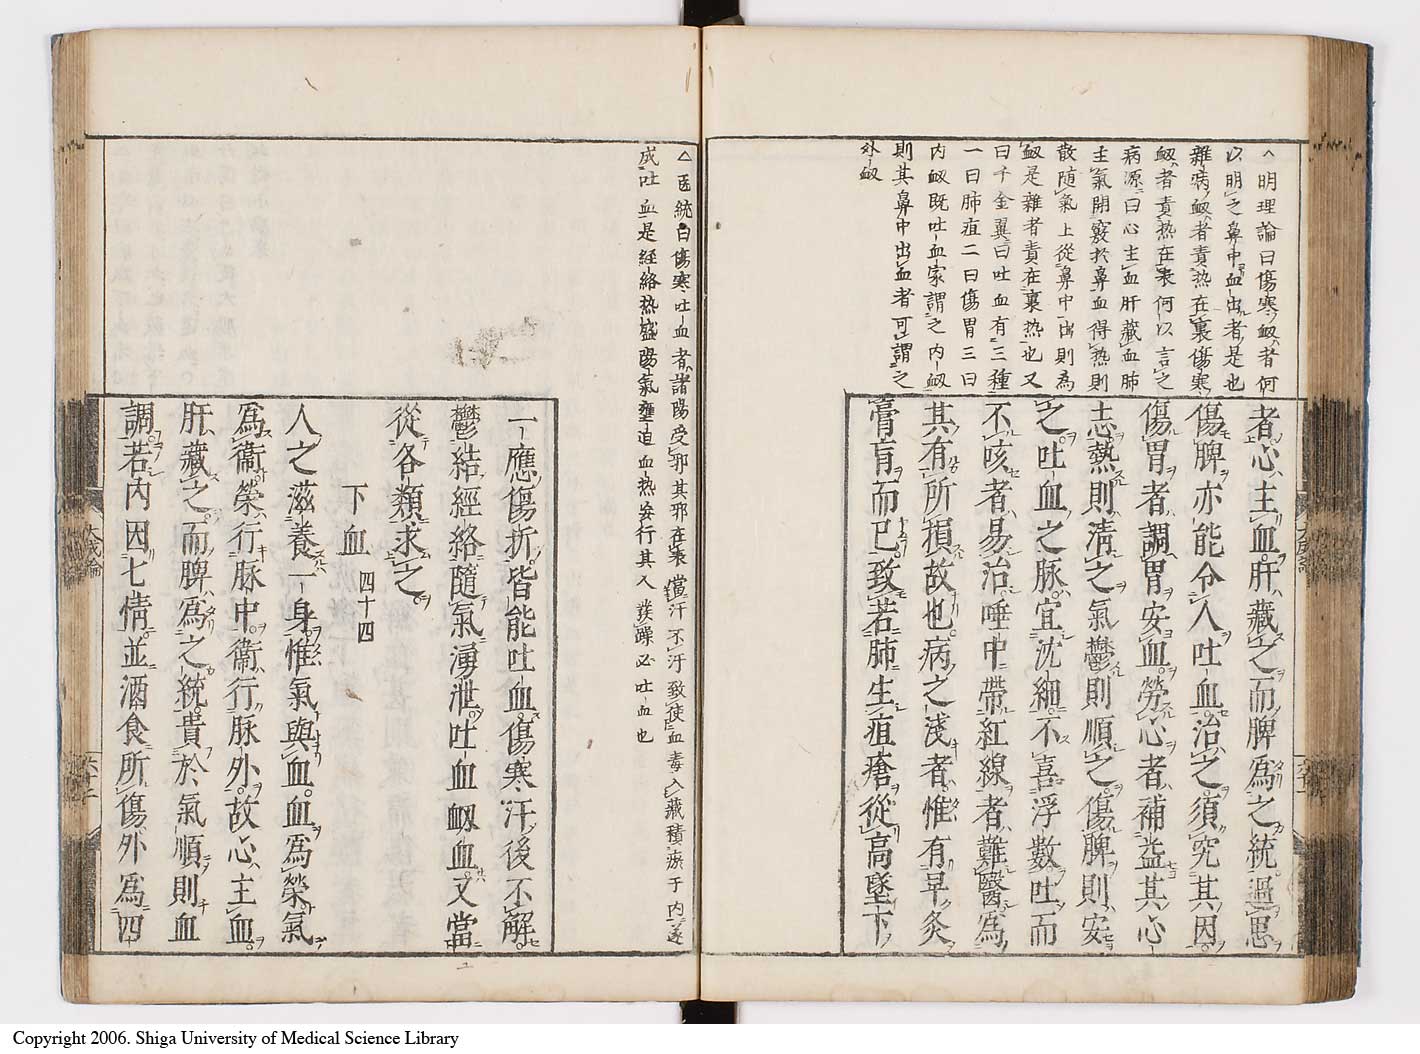 明理論曰傷寒衂者何
以明之鼻中血出者是也
雜病衂者責热在裏傷寒
衂者責热在表何以言之
病源曰心主血肝藏血肺
主氣開竅於鼻血得热則
散随氣上從鼻中出則為
衂是雜者責在裏热也又
曰千金翼曰吐血有三種
一曰肺疽二曰傷胃三曰
内衂既吐血家謂之内衂
則其鼻中出血者可謂之
外衂
者心主血肝藏之而脾爲之統過思
傷脾亦能令人吐血治之須究其因
傷胃者調胃安血勞心者補益其心
志熱則淸之氣鬱則順之傷脾則安
之吐血之脉宜沈細不喜浮數吐而
不咳者易治唾中帶紅線者難醫爲
其有所損故也病之淺者惟有早灸
膏肓而已致若肺生疽瘡從高墜下
△医統曰傷寒吐血者諸陽受邪其邪在表當汗不汗致使血毒入藏積瘀于内遂
成吐血是経絡热盛陽氣壅迫血热妄行其人𤼵躁必吐血也
一應傷折皆能吐血傷寒汗後不解
鬱結經絡隨氣湧泄吐血衂血又當
從各類求之
下血 四十四
人之滋養一身惟氣與血血爲榮氣
爲衞榮行脉中衞行脉外故心主血
肝藏之而脾爲之統貴於氣順則血
調若内因七情並酒食所傷外爲四
大成論
六十二
Copyright 2006. Shiga University of Medical Science Library